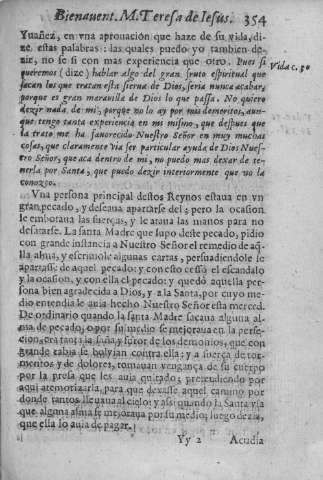 Bienauent. M. Teresa de Iesús. 354
Yuañez, en vna aprouacion que haze de su vida, di-
ze estas palabras: las quales puedo yo tambien de-
zir, no se si con mas experiencia que otro. Pues si
queremos (dize) hablar algo del gran fruto espiritual que
sacan los que tratan esta sierua de Dios, seria nunca acabar,
porque es gran marauilla de Dios lo que passa. No quiero
dezir nada de mi, porque no lo ay por mis demeritos, aun-
que tengo tanta experiencia en mi mismo, que despues que
la trato me ha fauorecido Nuestro Señor en muy muchas
cosas, que claramente via ser particular ayuda de Dios Nues-
tro Señor, que aca dentro de mi, no puedo mas dexar de te-
nerla por Santa, que puedo dezir interiormente que no la
conozco.
Vida c. 30
Vna persona principal destos Reynos estaua en vn
gran pecado, y deseaua apartarse del; pero la ocasion
le embotaua las fuerças, y le ataua las manos para no
desatarse. La santa Madre que supo deste pecado, pidio
con grande instancia a Nuestro Señor el remedio de aq̃-
lla alma, y escriuiole algunas cartas, persuadiendole se
apartasse de aquel pecado: y con esto cessò el escandalo
y la ocasion, y con ella el pecado: y quedó aquella per-
sona bien agradecida a Dios, y a la Santa, por cuyo me-
dio entendia le auia hecho Nuestro Señor esta merced.
De ordinario quando la santa Madre sacaua alguna al-
ma de pecado, o por su medio se mejoraua en la perfe-
cion, era tanta la saña y furor de los demonios, que con
grande rabia se boluian contra ella; y a fuerça de tor-
mentos y de dolores, tomauan vengança de su cuerpo
por la presa que les auia quitado; pretendiendo por
aqui atemorizarla, para que dexasse aquel camino por
donde tantos lleuaua al cielo: y assi quando la Santa via
que alguna alma se mejoraua por su medio, luego dezia,
que ella lo auia de pagar.
Yy 2 Acudia